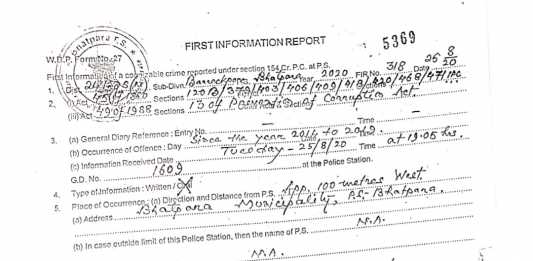 5369
FIRST INFORMATION REPORT
W.B.P. Form No. 27
First Information of a cognizable crime reported under section 154 Cr. P.C. at P.S.
1. Dist. Sub-Divn. Barrackpore Bhatpara Year 2020 FIR No. 318 Date 25/8/20
2. (i) Act Sections 120B/379/403/406/409/418/420/468/471 IPC
(iii) Act 49 of 1988 Sections 13 of Prevention of Corruption Act
3. (a) General Diary Reference : Entry No. – Time –
(b) Occurrence of Offence : Day Since the year 2014 to 2019. Time –
(c) Information Received Date Tuesday – 25/8/20 Time at 19.05 hrs.
G.D. No. 1609 at the Police Station.
4. Type of Information : Written / Oral
5. Place of Occurrence : (a) Direction and Distance from P.S. App. 100 metres West
(a) Address Bhatpara Municipality, P.S. Bhatpara.
(b) In case outside limit of this Police Station, then the name of P.S. N.A.
N.A.